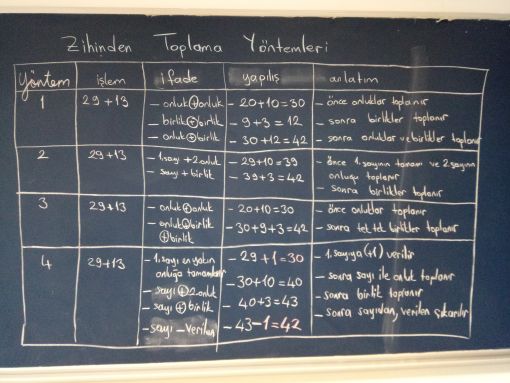 Zihinden Toplama Yöntemleri
Yöntem işlem ifade yapılış anlatım
1 29+13 – onluk⊕onluk – 20+10=30 – önce onluklar toplanır
– birlik⊕birlik – 9+3=12 – sonra birlikler toplanır
– onluk⊕birlik – 30+12=42 – sonra onluklar ve birlikler toplanır
2 29+13 – 1.sayı+2.onluk – 29+10=39 – önce 1.sayının tamamı ve 2.sayının
onluğu toplanır
– sayı+birlik – 39+3=42 – sonra birlikler toplanır
3 29+13 – onluk⊕onluk – 20+10=30 – önce onluklar toplanır
– onluk⊕birlik – 30+9+3=42 – sonra tek tek birlikler toplanır
⊕birlik
4 29+13 – 1.sayı en yakın – 29+1=30 – 1.sayıya (+1) verilir
onluğa tamamlanır
– sayı⊕2.onluk – 30+10=40 – sonra sayı ile onluk toplanır
– sayı⊕birlik – 40+3=43 – sonra birlik toplanır
– sayı–verilen – 43–1=42 – sonra sayıdan, verilen çıkarılır